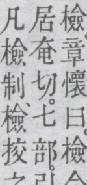 檢。章懷曰。檢
居奄切。七部。
凡檢制、檢挍之